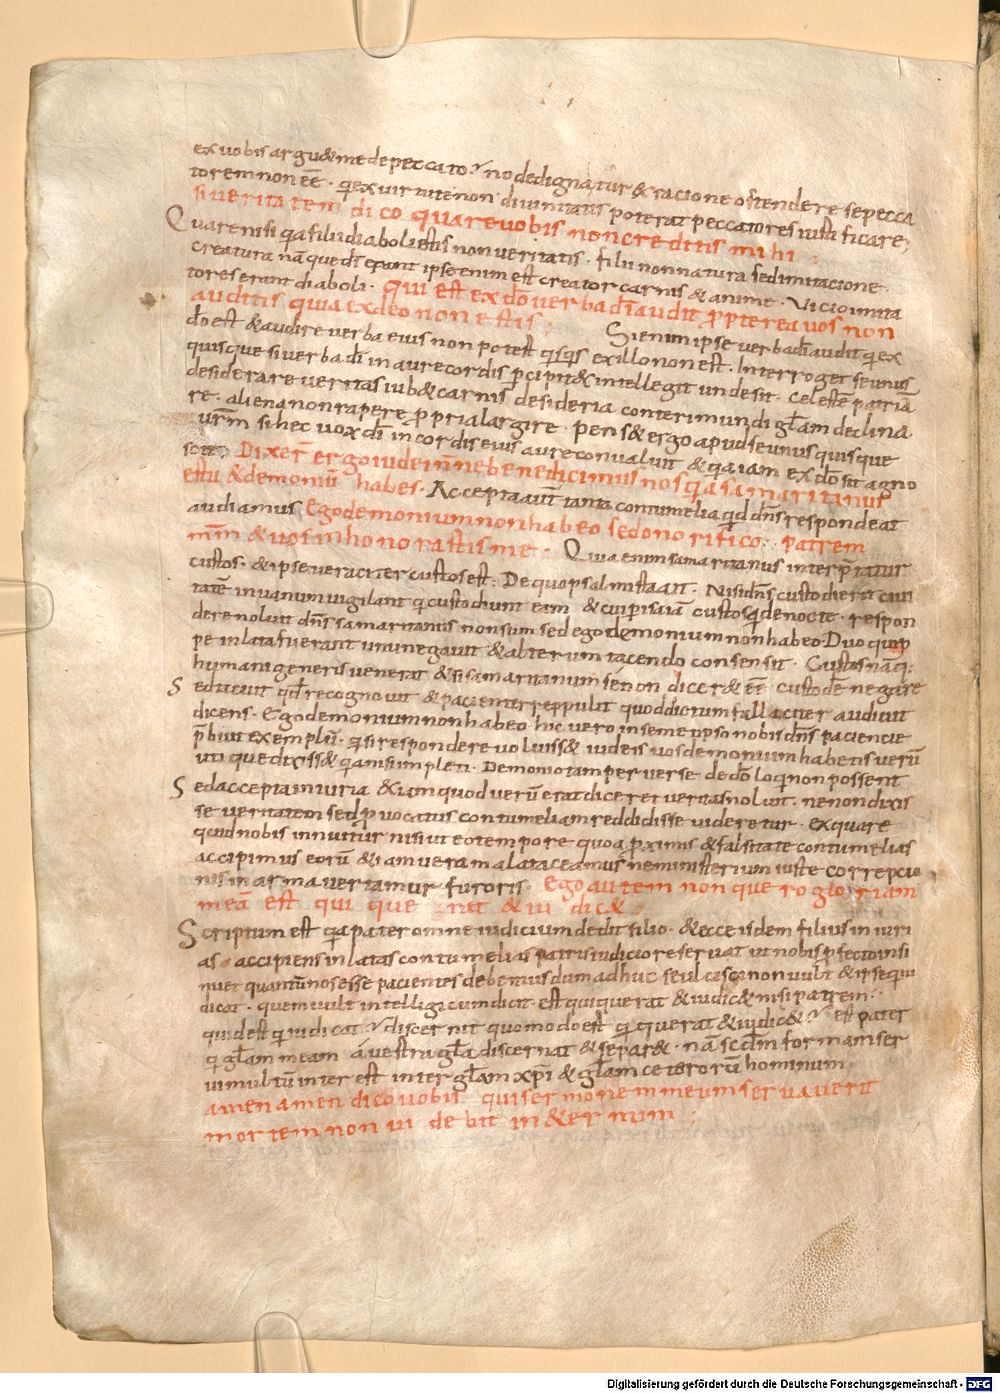 ex vobis arguet me de peccato? No dedignatur et racione ostendere se pecca
torem non eē. q̄ ex virtute non divinitatis poterat peccatores iustificare;
si veritatem dico quare vobis non creditis mihi:
Quare nisi q̄a filii diaboli estis non veritatis. filii non natura sed imitacione.
creatura nāque dī erant ipse enim est creator carnis et anime. Vicio imita
tores erant diaboli. qui est ex do̅ verba dī audit p̱pterea vos non
auditis quia ex deo non estis: Si enim ipse verba dī audit q̄ ex
do̅ est et audire verba eius non potest q̄sq̄s ex illo non est. Interroget se unus
quisque si verba dī in aure cordis p̱cipit et intellegit unde sit. Celestē patriā
desiderare veritas iubet carnis desideria conteri mundi gl̄am declina
re. aliena non rapere p̱pria largire. penset ergo apud se unus quisque
ur̄m si hec vox dī in cordis eius aure convaluit et q̄a iam ex do̅ sit agno
scit. Dixer̄ ergo iudei n̄ne bene dicimus nos q̄a samaritanus
es tu et demoniū habes. Accepta aut̄ tanta contumelia q̄d dn̄s respondeat
audiamus Ego demonium non habeo sed onorifico patrem
mm̄ et vos inhonorastis me. Quia enim samaritanus interp̄tatur
custos. et ipse veraciter custos est. De quo psalmista ait. Nisi dn̄s custodierit civi
tatē in vanum vigilant q̄ custodiunt eam et cui p̱ isaiā custos q̄d de nocte. respon
dere noluit dn̄s samaritanus non sum sed ego demonium non habeo. Duo quip
pe inlata fuerant unum negavit et alterum tacendo consensit. Custos nāq;
humani generis venerat et si samaritanum se non diceret eē custodē negaret
Sed tacuit qd̄ recognovit et pacienter reppulit quod dictum fallaciter audivit
dicens. Ego demonium non habeo. hic vero in semetipso nobis dn̄s paciencie
p̱buit exemplū. q̄ si respondere voluisset iudeis vos demonium habetis verū
utique dixisset q̄a nisi impleti demonio tam perverse de do̅ loqui non possent
Sed accepta iniuria etiam quod verū erat dicere veritas noluit. ne non dixis
se veritatem sed p̱vocatus contumeliam reddidisse videretur. Ex qua re
quid nobis innuitur nisi ut eo tempore quo a p̱ximis et falsitate contumelias
accipimus eorū etiam vera mala taceamus ne ministerium iuste correpcio
nis in arma vertamur furoris. Ego autem non quero gloriam
meā est qui que rat et iu dic&
Scriptum est q̄a pater omne iudicium dedit filio. et ecce isdem filius iniuri
as accipiens inlatas contumelias patris iudicio reservat ut nobis p̱fecto insi
nuet quantū nos esse pacientes debemus dum adhuc se ulcisci non vult et ipse qui iu
dicat. quem vult intelligi cum dicit. est qui querat et iudicet nisi patrem.
quid est q̄ iudicat? discernit quomodo est q̄ querat et iudicet? est pater
q̄ gl̄am meam a vestra gl̄a discernat et separet. nā scd̄m formam ser
vi multū inter est inter gl̄am xp̄i et gl̄am ceterorū hominum
amen amen dico vobis qui sermonem meum servaverit
mortem non vi debit in æternum;
Digitalisierung gefördert durch die Deutsche Forschungsgemeinschaft - DFG